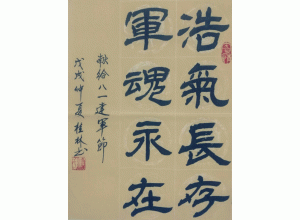 浩氣長存
軍魂永在
献给八一建军節
戊戌仲夏桂林书